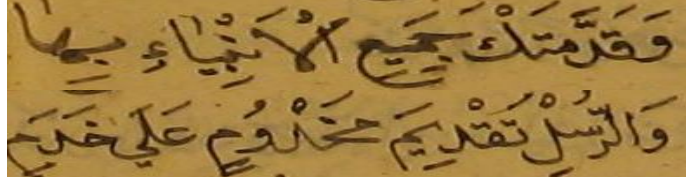 وَقَدَّمَتْكَ جَمِيعِ الْأَنْبِيَاءِ بِهَا
وَالرُّسْلِ تَقْدِيمَ مَخْدُومٍ عَلَي خَدَمِ